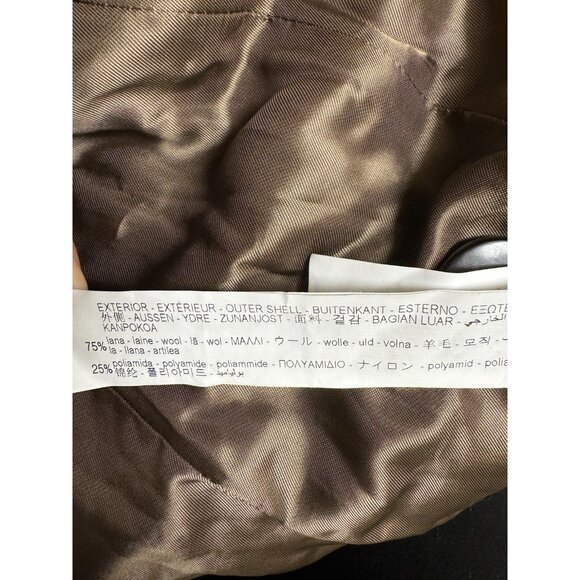 EXTERIOR - EXTÉRIEUR - OUTER SHELL - BUITENKANT - ESTERNO -
外側 - AUSSEN - YDRE - ZUNANJOST - 面料 - 겉감 - BAGIAN LUAR -
KANPOKOA
75% lana - laine - wool - lã - wol - ΜΑΛΛΙ - ウール - wolle - uld - volna - 羊毛 - 모직 -
la - llana - artilea
poliamida - polyamide - poliammide - ΠΟΛΥΑΜΙΔΙΟ - ナイロン - polyamid -
25% 锦纶 - 폴리아미드 - بولياميد